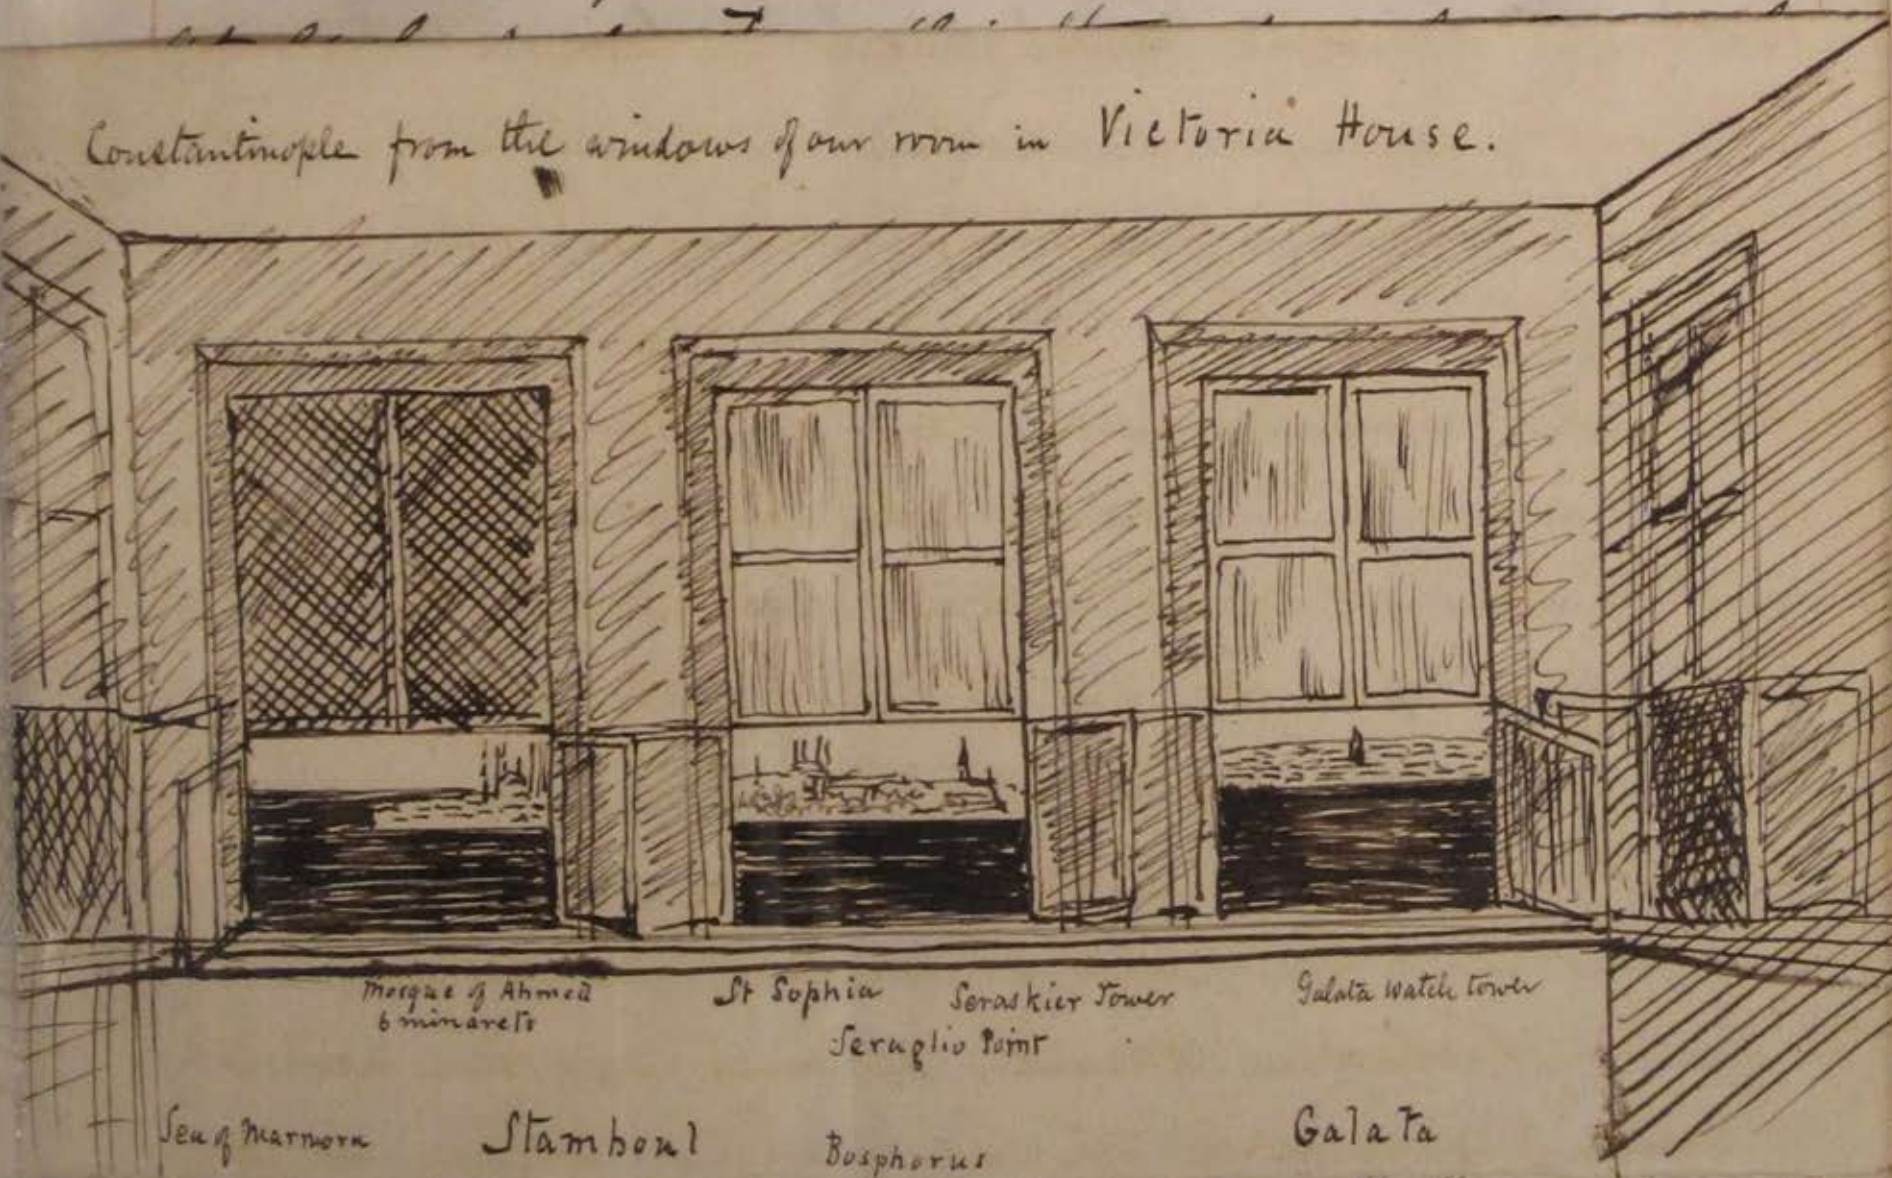 Constantinople from the windows of our room in Victoria House.
Mosque of Ahmed St Sophia Seraskier Tower Galata watch tower
6 minarets
Seraglio Point
Sea of Marmora Stamboul Bosphorus Galata